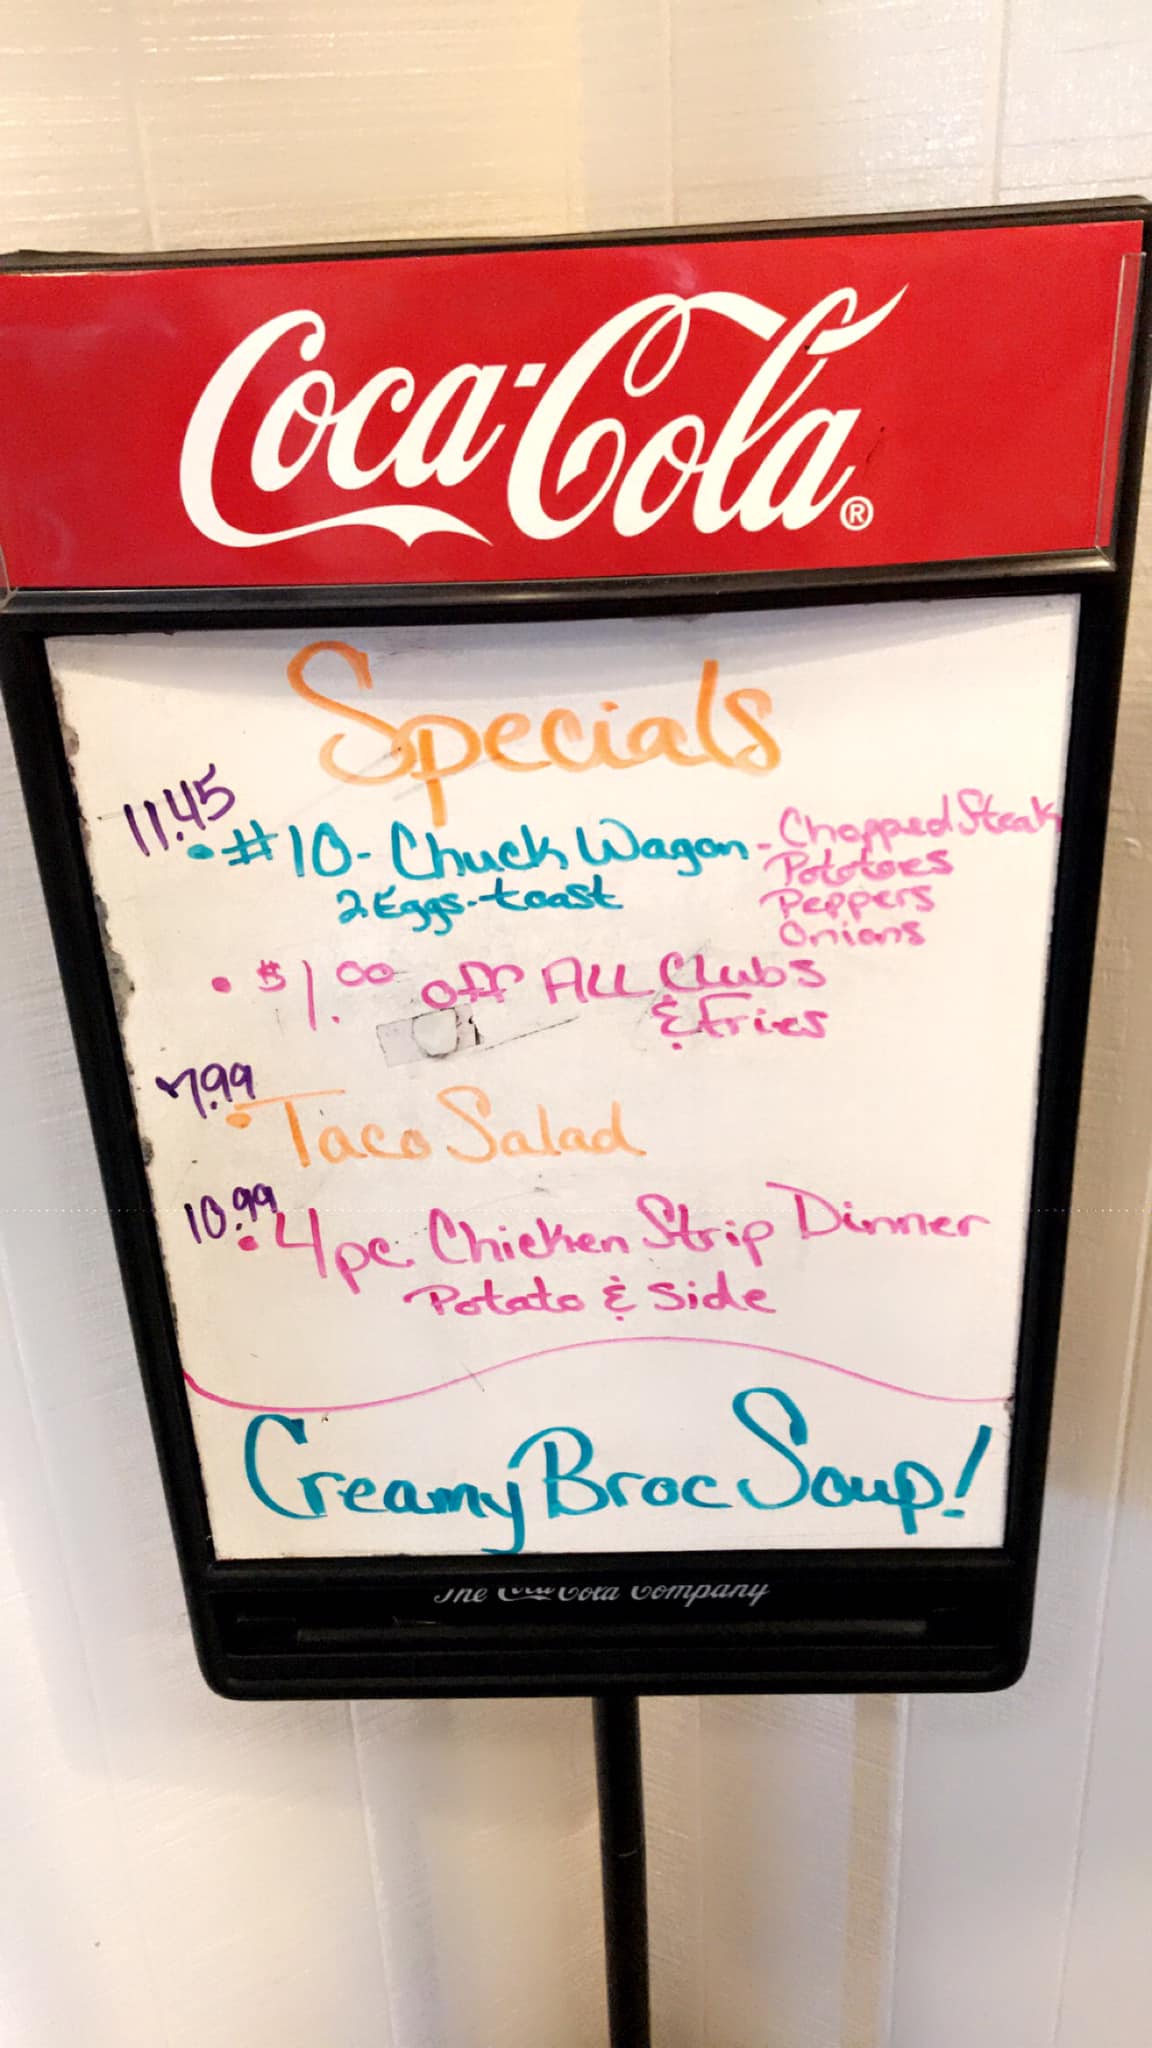 Coca-Cola®
Specials
11.45
• #10 - Chuck Wagon - Chopped Steak
Pototoes
2 Eggs - toast
Peppers
Onions
• $1.00 off ALL Clubs
& Fries
7.99
• Taco Salad
10.99
• 4pc. Chicken Strip Dinner
Potato & Side
Creamy Broc Soup!
The Coca-Cola Company